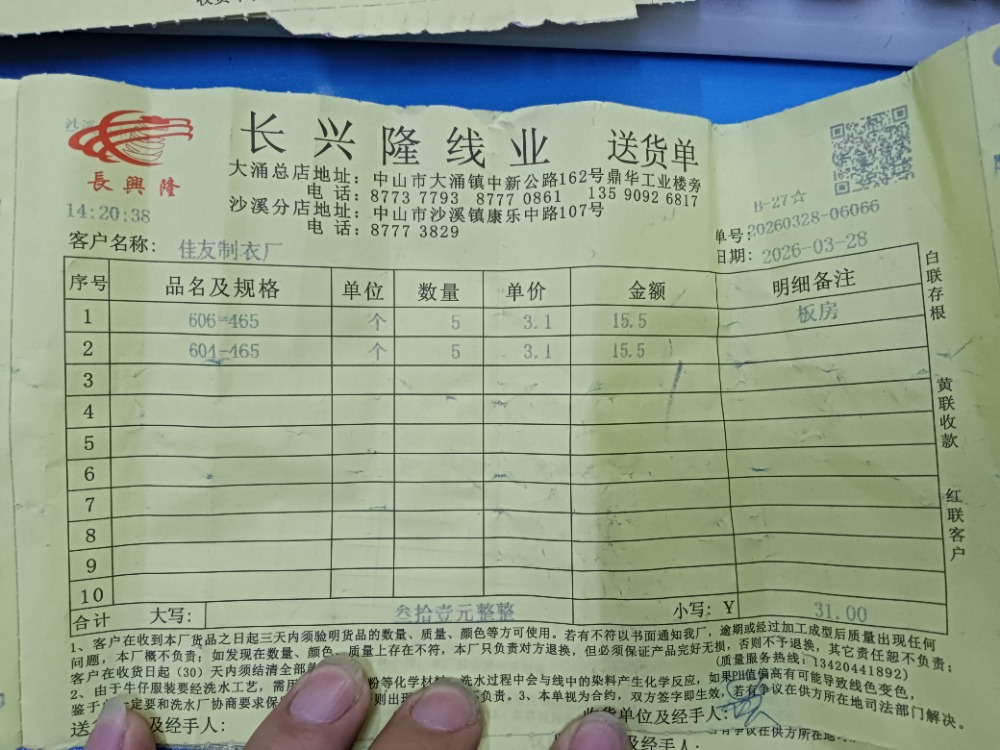 长兴隆线业 送货单
長興隆
大涌总店地址：中山市大涌镇中新公路162号鼎华工业楼旁
电 话：8773 7793 8777 0861 135 9092 6817
沙溪分店地址：中山市沙溪镇康乐中路107号
电 话：8777 3829
14:20:38
B-27☆
单号：20260328-06066
日期：2026-03-28
客户名称：佳友制衣厂
序号 品名及规格 单位 数量 单价 金额 明细备注
1 606-465 个 5 3.1 15.5 板房
2 604-465 个 5 3.1 15.5
3
4
5
6
7
8
9
10
合计 大写： 叁拾壹元整整 小写：¥ 31.00
白联存根
黄联收款
红联客户
1、客户在收到本厂货品之日起三天内须验明货品的数量、质量、颜色等方可使用。若有不符以书面通知我厂，逾期或经过加工成型后质量出现任何
问题，本厂概不负责；如发现在数量、颜色、质量上存在不符，本厂只负责对方退换，但必须保证产品完好无损，否则不予退换，其它责任恕不负责；
客户在收货日起（30）天内须结清全部 （质量服务热线：13420441892）
2、由于牛仔服装要经洗水工艺，需用 粉等化学材 洗水过程中会与线中的染料产生化学反应，如果PH值偏高有可能导致线色变色，
鉴于 一定要和洗水厂协商要求保 则出现 负责。3、本单视为合约，双方签字即生效，若有争议在供方所在地司法部门解决。
送 及经手人： 收货单位及经手人：
及经手人：